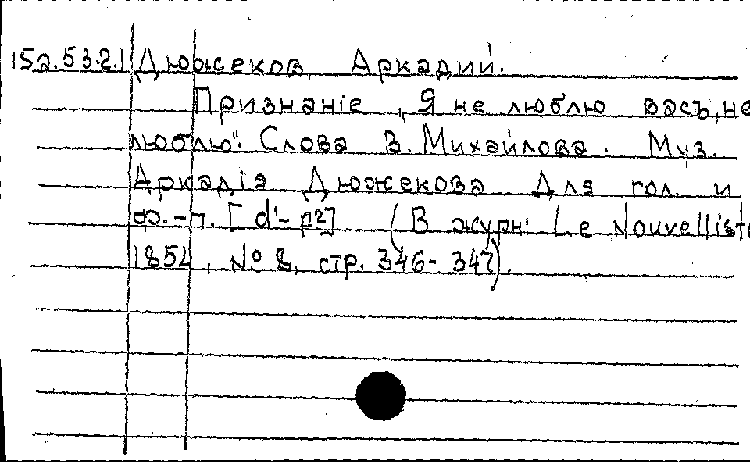 152.53.2.1 Дюжеков Аркадий.
Признанiе „Я не люблю васъ, не
люблю". Слова В. Михайлова. Муз.
Аркадiя Дюжекова. Для гол. и
ф.-п. [d'- ] (В журн: Le Nouvelliste
1854, № 8, стр. 346-347).